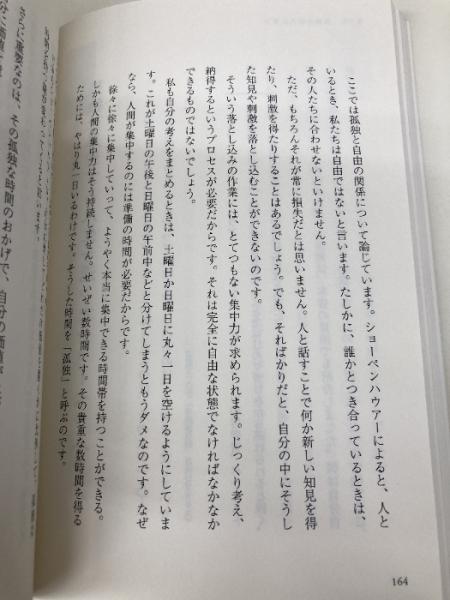 ここでは孤独と自由の関係について論じています。ショーペンハウアーによると、人と
いるとき、私たちは自由ではないと言います。たしかに、誰かとつき合っているときは、
その人たちに合わせないといけません。
ただ、もちろんそれが常に損失だとは思いません。人と話すことで何か新しい知見を得
たり、刺激を得たりすることはあるでしょう。でも、そればかりだと、自分の中にそうし
た知見や刺激を落とし込むことができないのです。
そういう落とし込みの作業には、とてつもない集中力が求められます。じっくり考え、
納得するというプロセスが必要だからです。それは完全に自由な状態でなければなかなか
できるものではないでしょう。
私も自分の考えをまとめるときは、土曜日か日曜日に丸々一日を空けるようにしていま
す。これが土曜日の午後と日曜日の午前中などと分けてしまうともうダメなのです。なぜ
なら、人間が集中するのには準備の時間が必要だからです。
徐々に徐々に集中していって、ようやく本当に集中できる時間帯を持つことができる。
しかも人間の集中力はそう持続しません。せいぜい数時間です。その貴重な数時間を得る
ためには、やはり丸一日いるわけです。そうした時間を「孤独」と呼ぶのです。
さらに重要なのは、その孤独な時間のおかげで、自分の価値
164